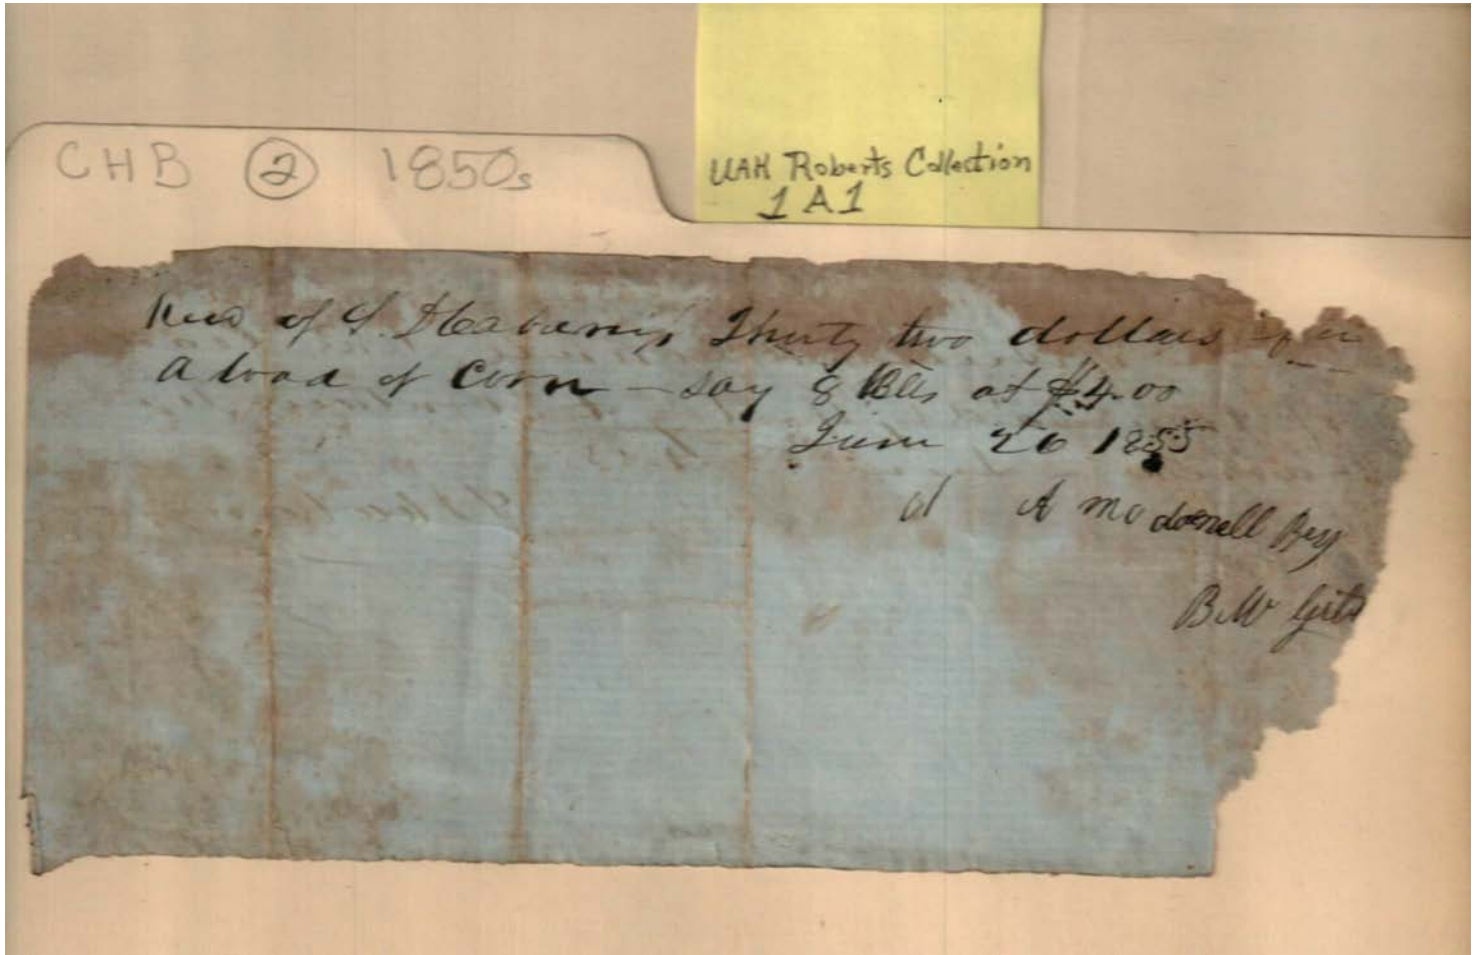 CHB ② 1850s
UAH Roberts Collection
1 A 1
Recd of S. Thirty two dollars for
A load of Corn – say 8 Bls at $4.00
June 26 1855
A McDonnell
B. W.